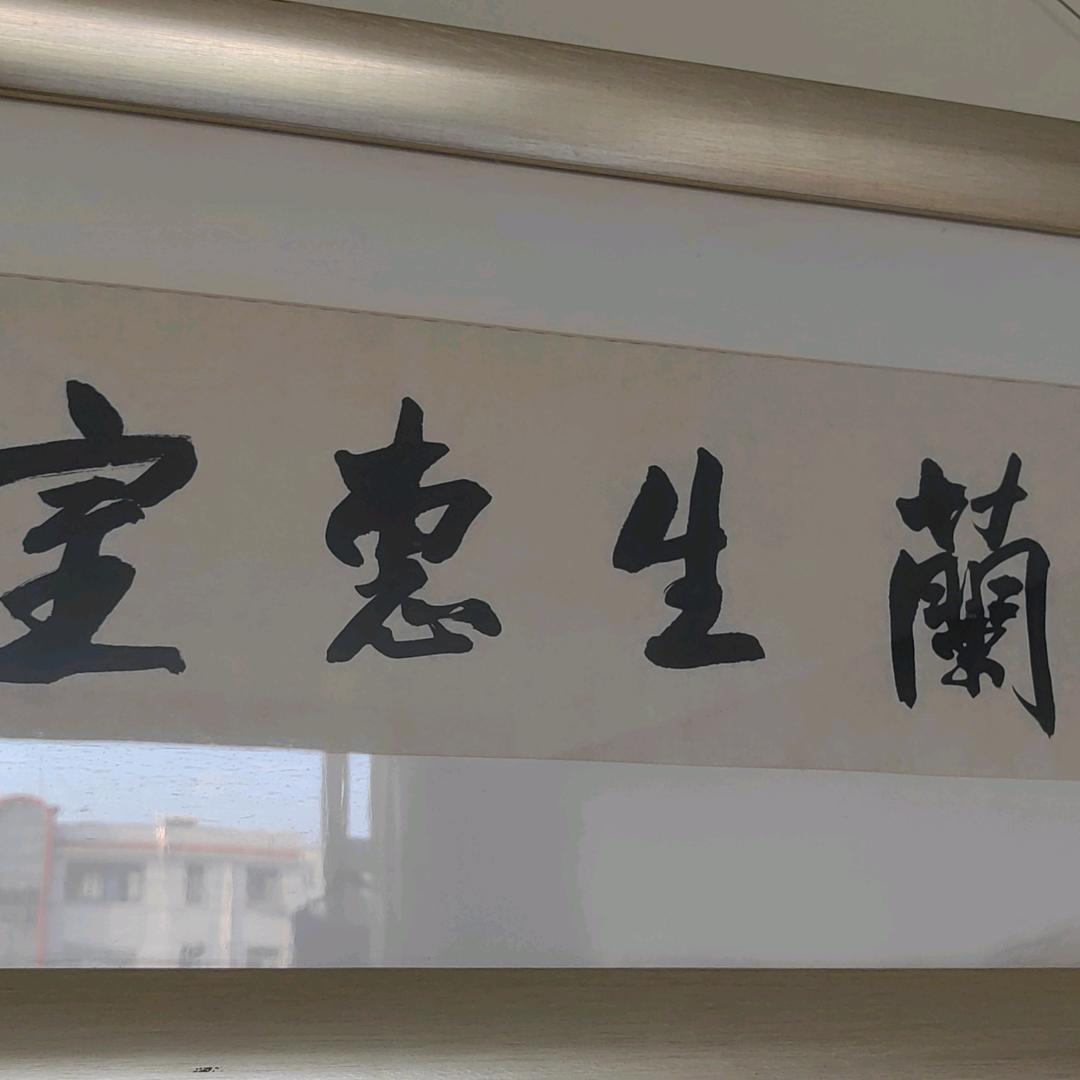 蘭生惠室